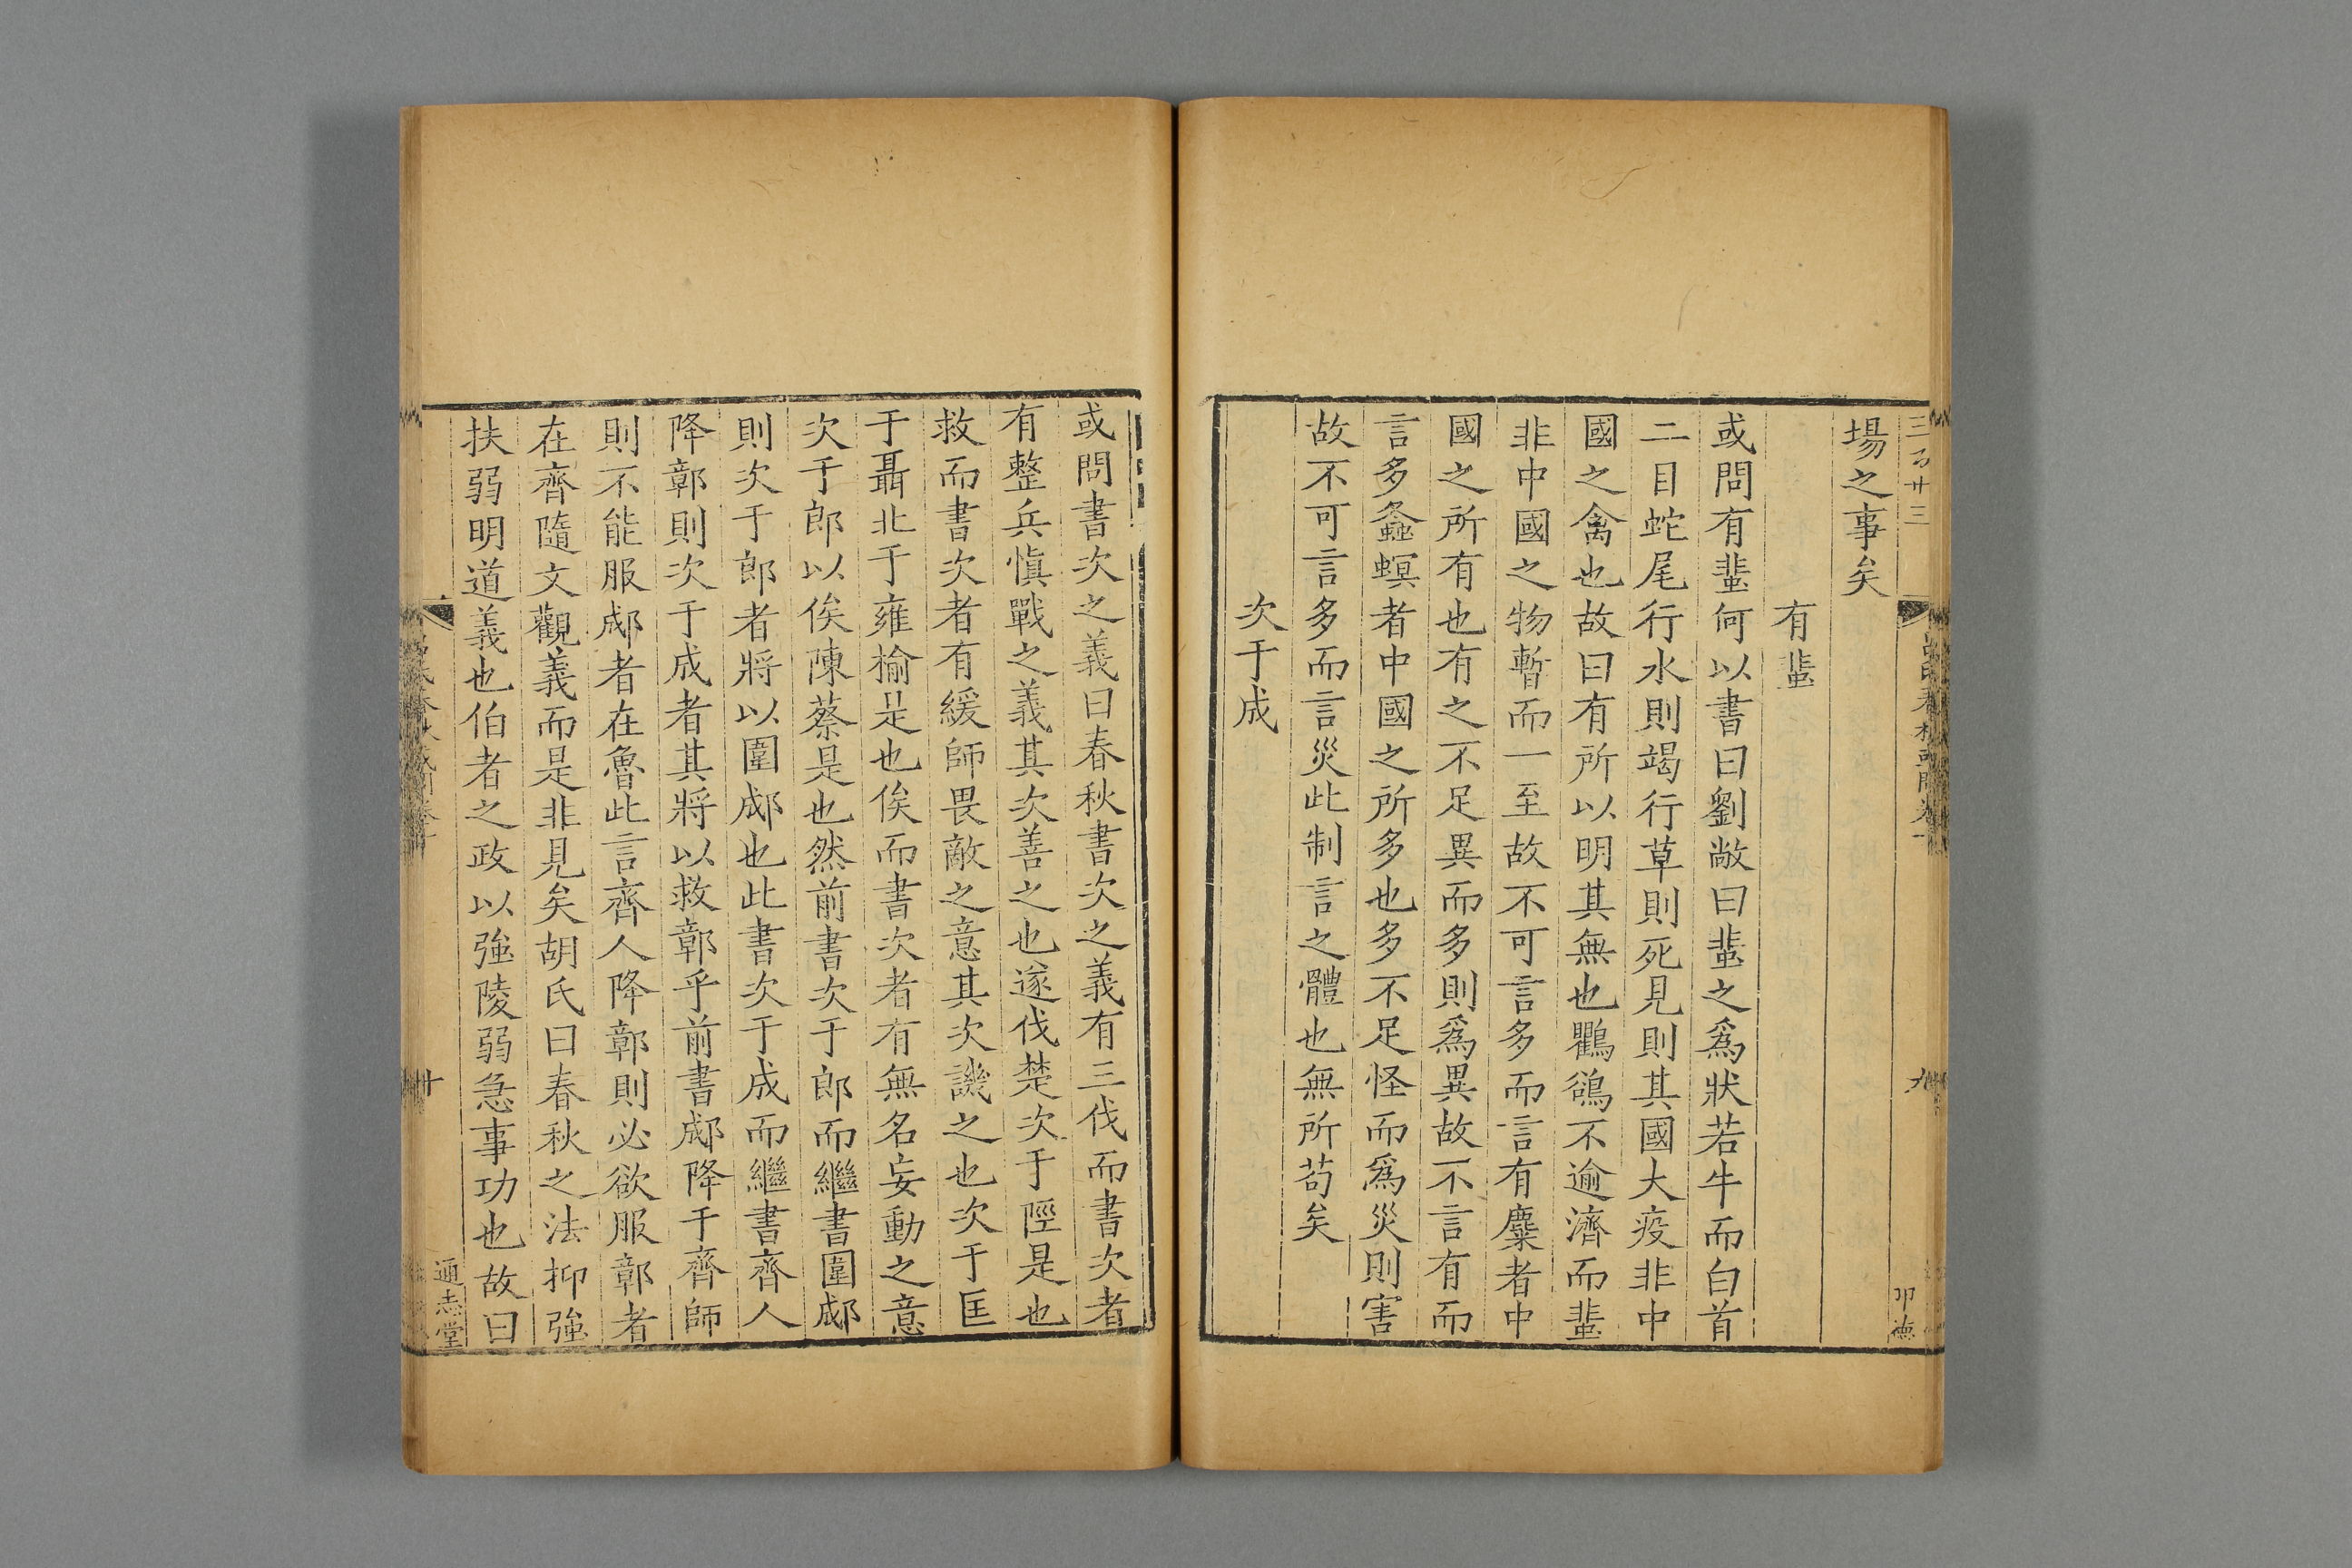 場之事矣
有蜚
或問有蜚何以書曰劉敞曰蜚之爲狀若牛而白首
二目蛇尾行水則竭行草則死見則其國大疫非中
國之禽也故曰有所以明其無也鸜鵒不逾濟而蜚
非中國之物暫而一至故不可言多而言有麋者中
國之所有也有之不足異而多則爲異故不言有而
言多螽螟者中國之所多也多不足怪而爲災則害
故不可言多而言災此制言之體也無所苟矣
次于成
或問書次之義曰春秋書次之義有三伐而書次者
有整兵愼戰之義其次善之也遂伐楚次于陘是也
救而書次者有緩師畏敵之意其次譏之也次于匡
于聶北于雍榆是也俟而書次者有無名妄動之意
次于郎以俟陳蔡是也然前書次于郎而繼書圍郕
則次于郎者將以圍郕也此書次于成而繼書齊人
降鄣則次于成者其將以救鄣乎前書郕降于齊師
則不能服郕者在魯此言齊人降鄣則必欲服鄣者
在齊隨文觀義而是非見矣胡氏曰春秋之法抑強
扶弱明道義也伯者之政以強陵弱急事功也故曰
通志堂